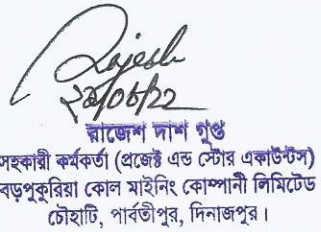 Rajesh
রাজেশ দাশ গুপ্ত
সহকারী কর্মকর্তা (প্রজেক্ট এন্ড স্টোর একাউন্টস)
বড়পুকুরিয়া কোল মাইনিং কোম্পানী লিমিটেড
চৌহাটি, পার্বতীপুর, দিনাজপুর।